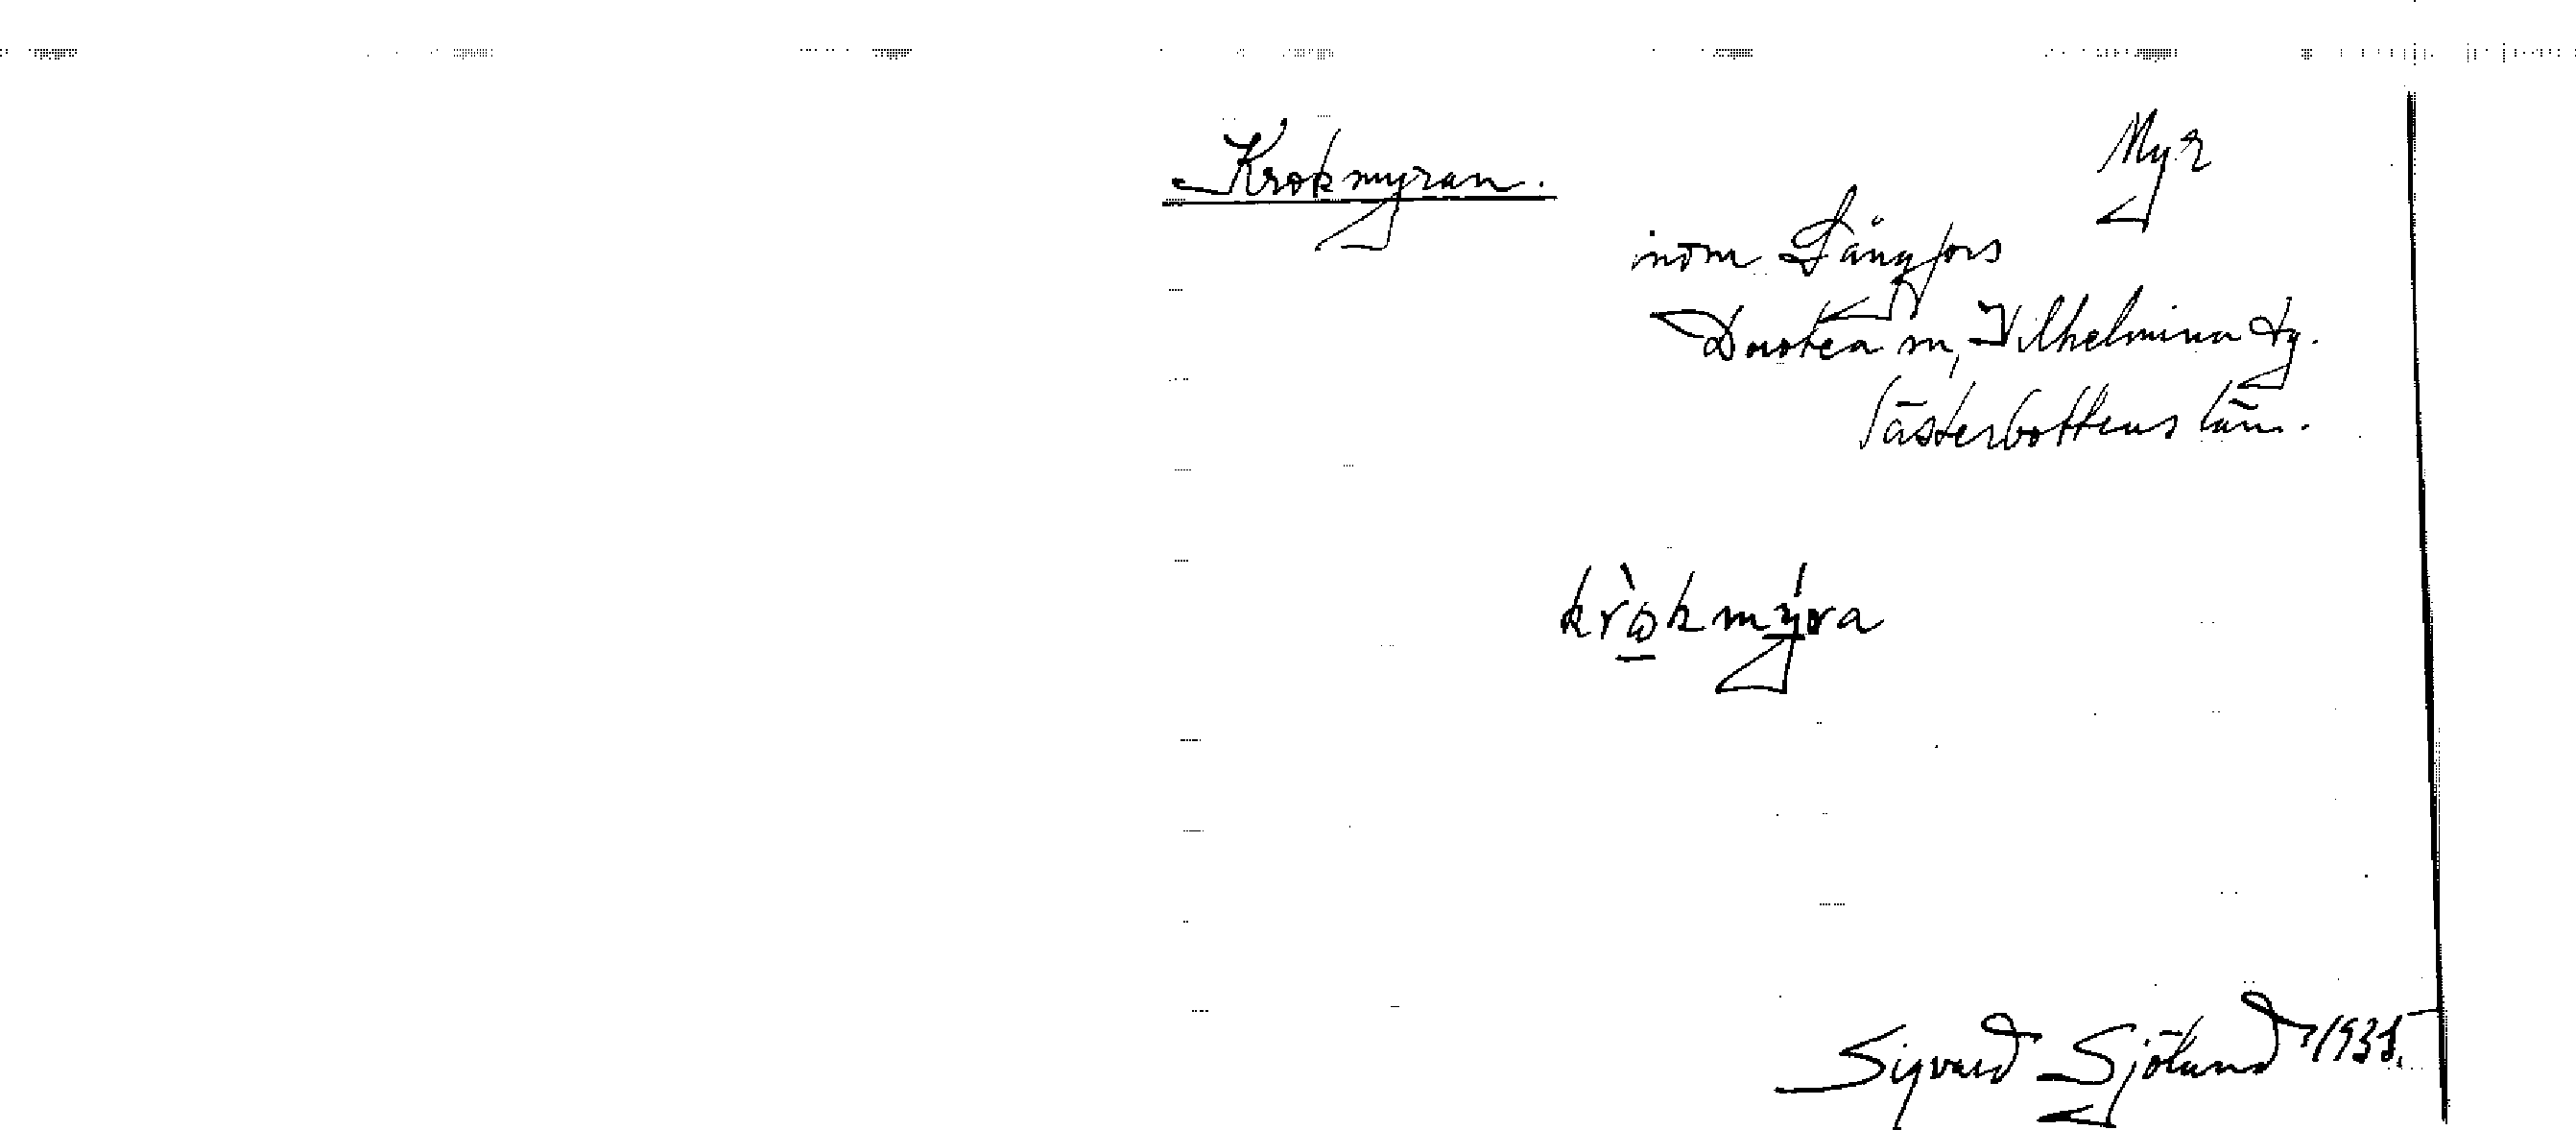 Krokmyran.
Myr
inom Långfors
Dorotea sn, Vilhelmina tg.
Västerbottens län.
kròkmýra
Sigvard Sjölund 1935.